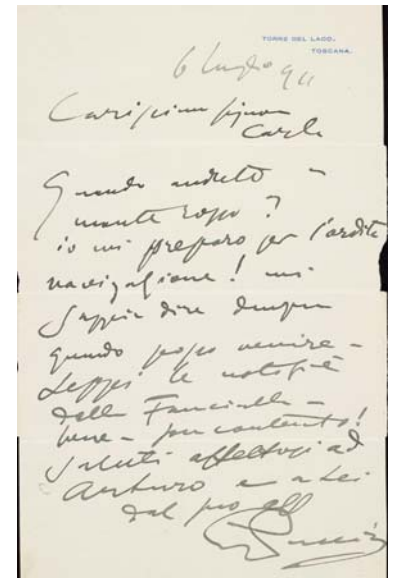 TORRE DEL LAGO,
TOSCANA.
6 luglio 911
Carissima signora
Carla
Quando andrete a
monterosso?
io mi preparo per l'ardita
navigazione! mi
sappia dire dunque
quando posso venire -
Leggo le notizie
della Fanciulla -
bene - son contento!
Saluti affettuosi ad
Arturo e a Lei
dal suo aff
GPuccini